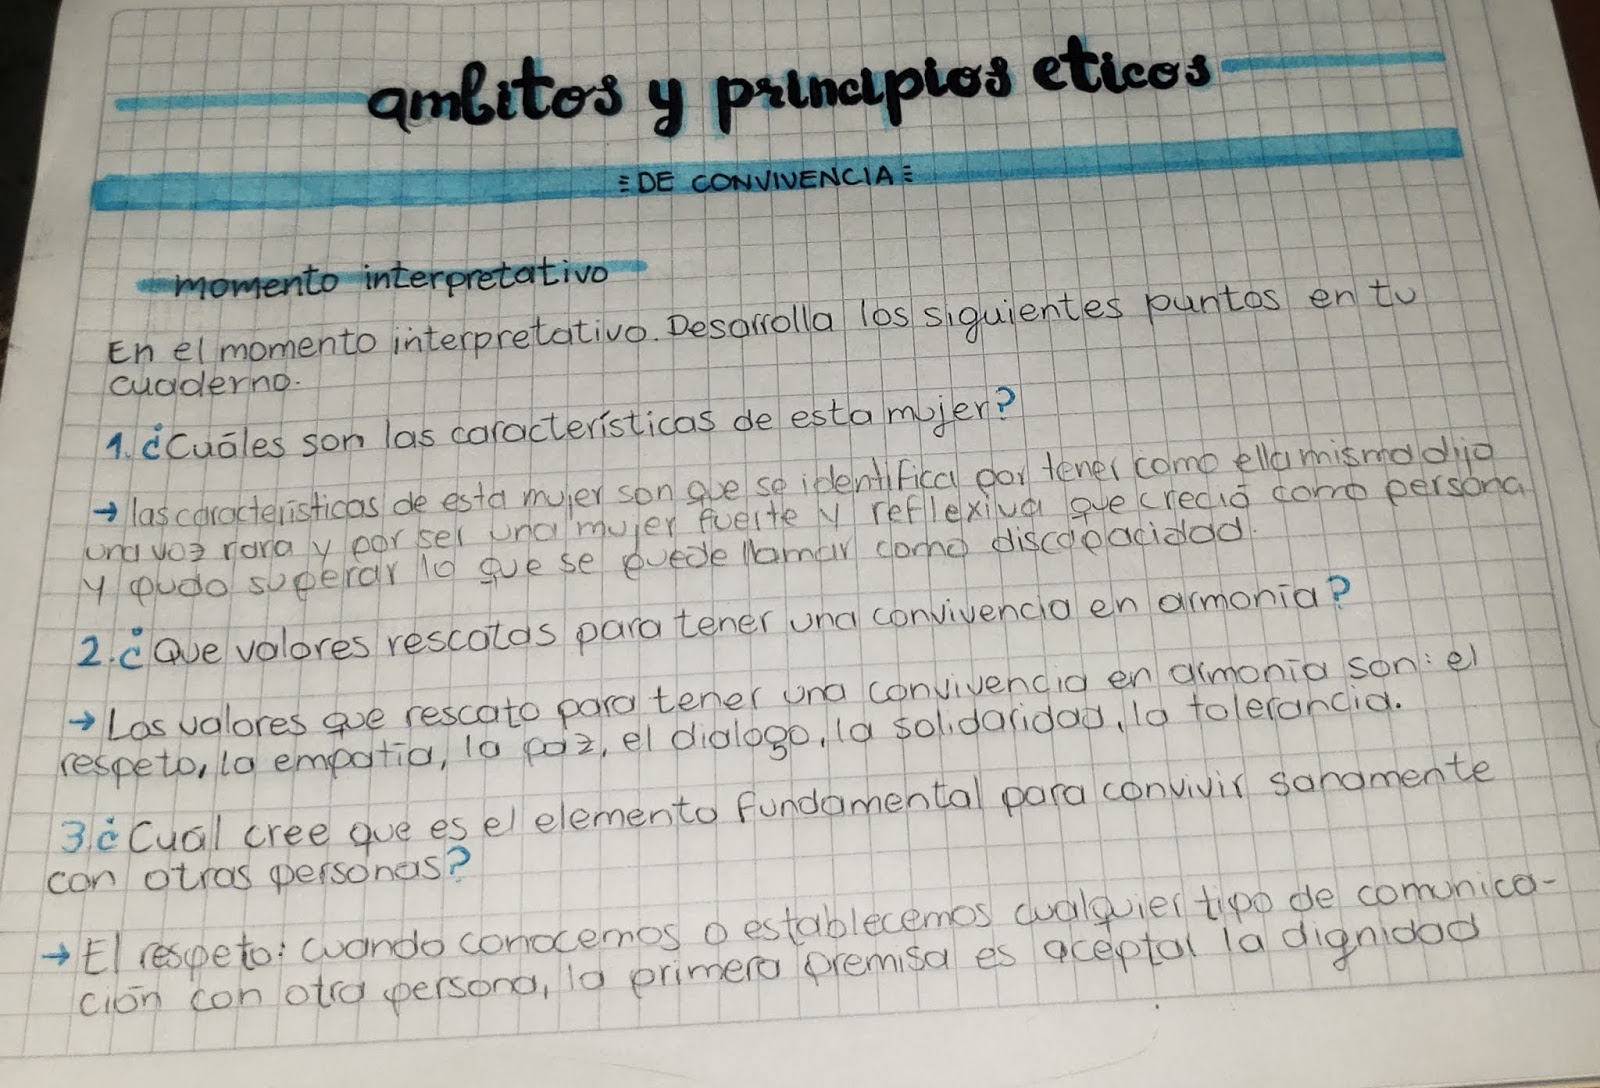 ambitos y principios eticos
DE CONVIVENCIA
momento interpretativo
En el momento interpretativo. Desarrolla los siguientes puntos en tu
cuaderno.
1. ¿Cuáles son las características de esta mujer?
→ las características de esta mujer son que se identifica por tener como ella misma dijo
una voz rara y por ser una mujer fuerte y reflexiva que creció como persona
y pudo superar lo que se puede llamar como discapacidad.
2. ¿Que valores rescatas para tener una convivencia en armonía?
→ Los valores que rescato para tener una convivencia en armonía son: el
respeto, la empatía, la paz, el dialogo, la solidaridad, la tolerancia.
3. ¿Cual cree que es el elemento fundamental para convivir sanamente
con otras personas?
→ El respeto: cuando conocemos o establecemos cualquier tipo de comunica-
ción con otra persona, la primera premisa es aceptar la dignidad